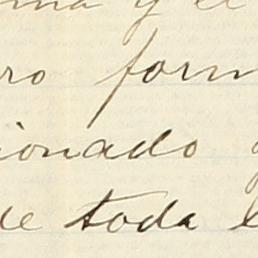 ma y el
ro form
ionado
de toda l